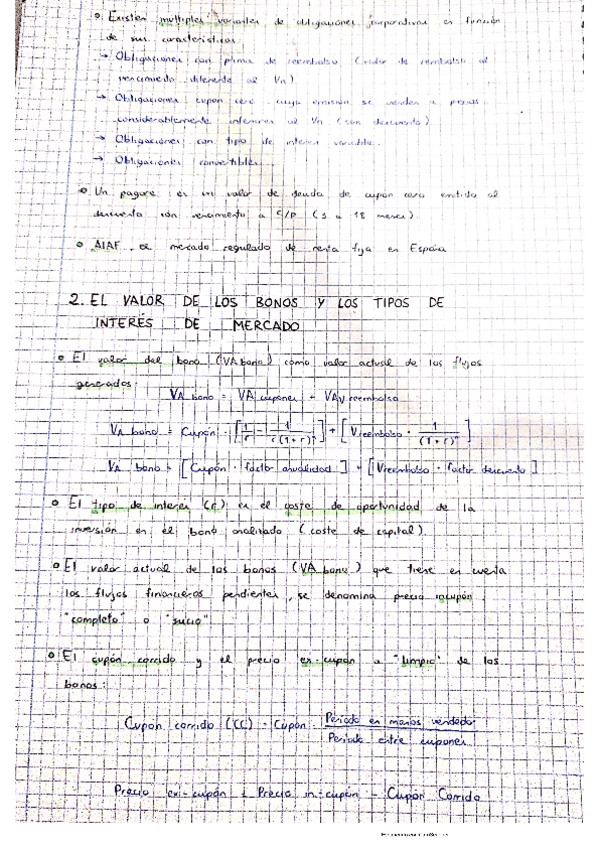 o Existen multiples variantes de obligaciones corporativas en función
de sus características
→ Obligaciones con prima de reembolso (valor de reembolso al
vencimiento diferente al Vn)
→ Obligaciones cupón cero cuya emisión se venden a precios
considerablemente inferiores al Vn (con descuento)
→ Obligaciones con tipo de interes variable.
→ Obligaciones convertibles...
o Un pagaré es un valor de deuda de cupón cero emitido al
descuento con vencimiento a C/P (1 a 18 meses)
o AIAF, mercado regulado de renta fija en España
2. EL VALOR DE LOS BONOS Y LOS TIPOS DE
INTERÉS DE MERCADO
o El valor del bono (VA bono) como valor actual de los flujos
generados
VA bono = VA cupones + VA V reembolso
VA bono = Cupón · [1/r - 1/(r(1+r)^n)] + [V reembolso · 1/(1+r)^n]
VA bono = [Cupón · factor anualidad] + [V reembolso · factor descuento]
o El tipo de interes (r) es el coste de oportunidad de la
inversión en el bono analizado (coste de capital).
o El valor actual de los bonos (VA bono) que tiene en cuenta
los flujos financieros pendientes, se denomina precio incupón,
"completo" o "sucio"
o El cupón corrido y el precio ex-cupón o "limpio" de los
bonos:
Cupón corrido (CC) = Cupón · Periodo en manos vendedor / Periodo entre cupones
Precio ex-cupón = Precio in-cupón - Cupón Corrido